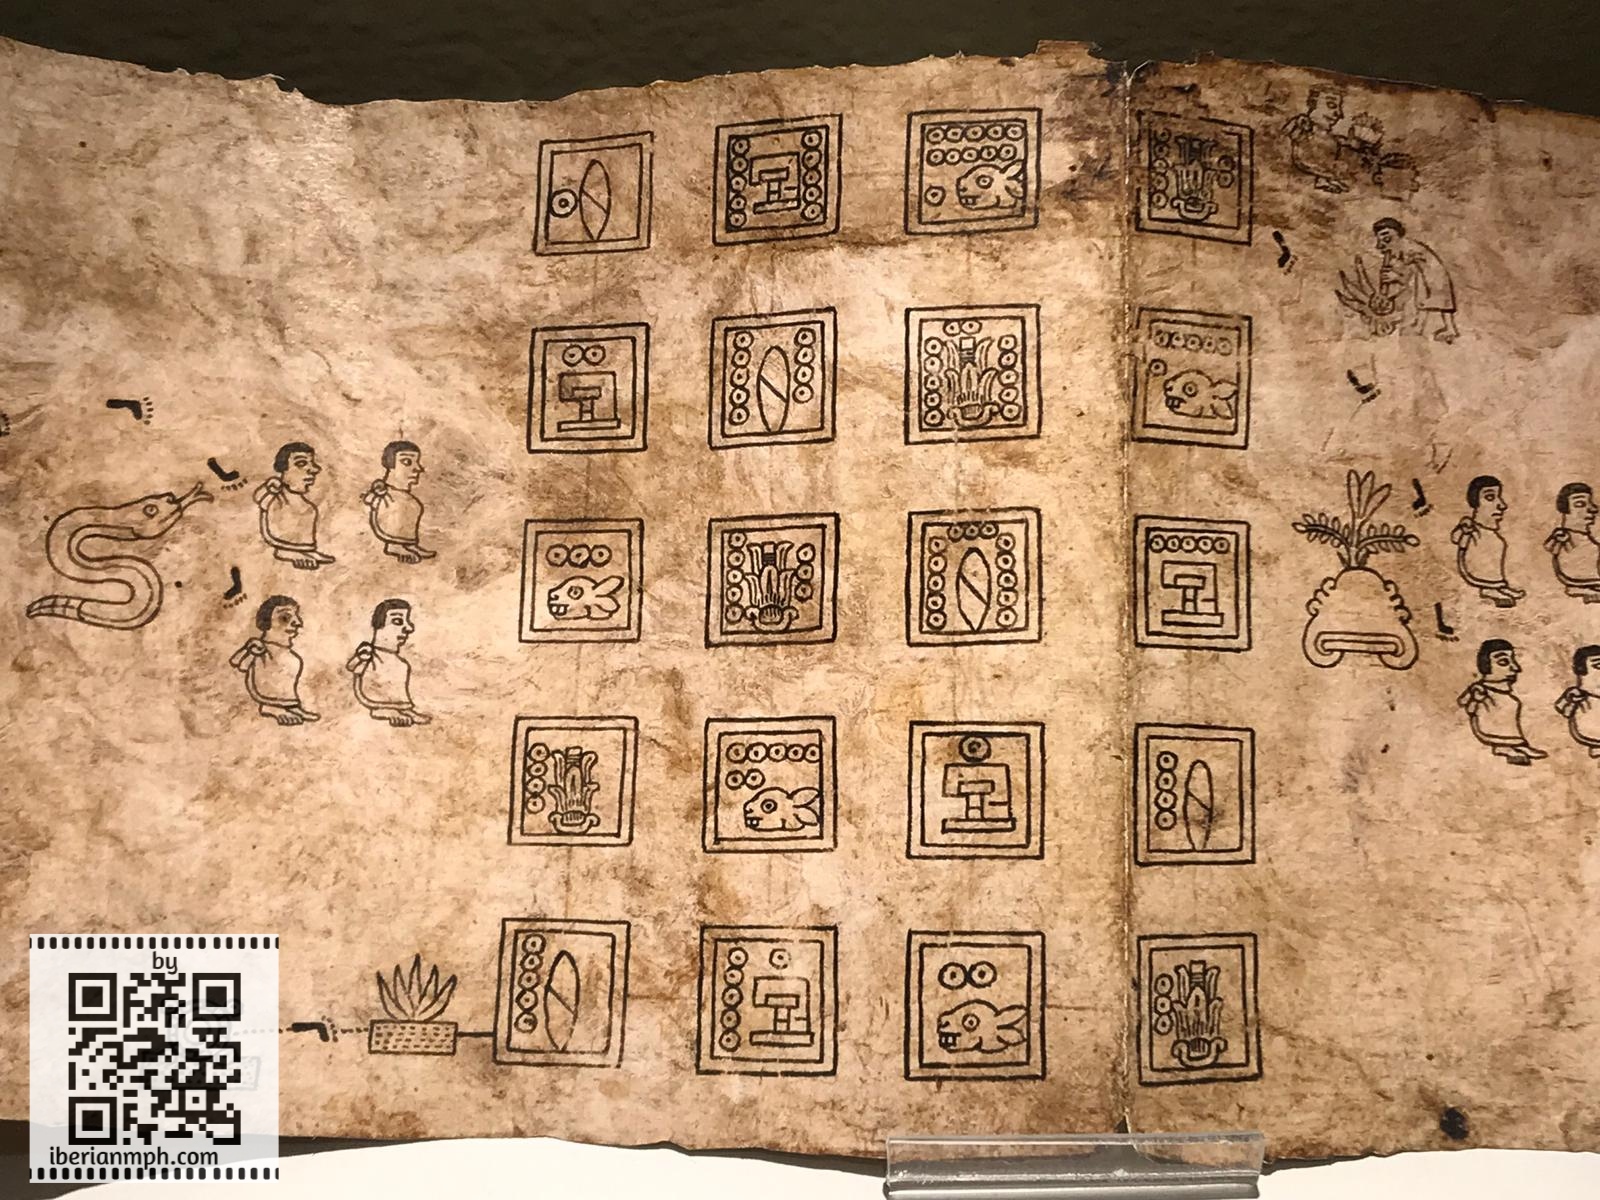 by
iberianmph.com